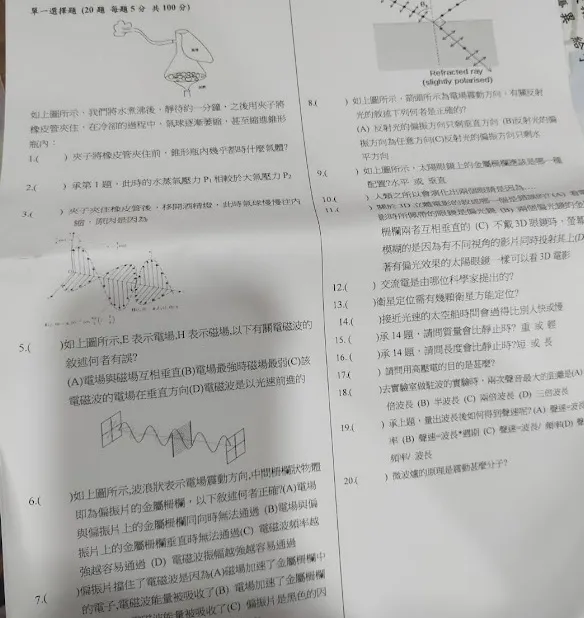 單一選擇題 (20 題 每題 5 分 共 100 分)
如上圖所示，我們將水煮沸後，靜待約一分鐘，之後用夾子將
橡皮管夾住，在冷卻的過程中，氣球逐漸萎縮，甚至縮進錐形
瓶內：
1.( ) 夾子將橡皮管夾住前，錐形瓶內幾乎都時什麼氣體?
2.( ) 承第 1 題，此時的水蒸氣壓力 P₁ 相較於大氣壓力 P₀
3.( ) 夾子夾住橡皮管後，移開酒精燈，此時氣球慢慢往內
縮，原因是因為
5.( )如上圖所示,E 表示電場,H 表示磁場,以下有關電磁波的
敘述何者有誤?
(A)電場與磁場互相垂直(B)電場最強時磁場最弱(C)該
電磁波的電場在垂直方向(D)電磁波是以光速前進的
6.( )如上圖所示,波浪狀表示電場震動方向,中間柵欄狀物體
即為偏振片的金屬柵欄，以下敘述何者正確?(A)電場
與偏振片上的金屬柵欄同向時無法通過 (B)電場與偏
振片上的金屬柵欄垂直時無法通過(C) 電磁波頻率越
強越容易通過 (D) 電磁波振幅越強越容易通過
7.( )偏振片擋住了電磁波是因為(A)磁場加速了金屬柵欄中
的電子,電磁波能量被吸收了(B) 電場加速了金屬柵欄
能量被吸收了(C) 偏振片是黑色的因
Refracted ray
(slightly polarised)
8.( ) 如上圖所示，箭頭所示為電場震動方向，有關反射
光的敘述下列何者是正確的?
(A) 反射光的偏振方向只剩垂直方向 (B)反射光的偏
振方向為任意方向(C)反射光的偏振方向只剩水
平方向
9.( ) 如上圖所示，太陽眼鏡上的金屬柵欄應該是哪一種
配置?水平 或 垂直
10.( ) 人類之所以會演化出兩個眼睛是因為
11.(
柵欄兩者互相垂直的 (C) 不戴 3D 眼鏡時，螢幕
模糊的是因為有不同視角的影片同時投射其上(D
著有偏光效果的太陽眼鏡一樣可以看 3D 電影
12.( ) 交流電是由哪位科學家提出的?
13.( )衛星定位需有幾顆衛星方能定位?
14.( )接近光速的太空船時間會過得比別人快或慢
15.( )承 14 題，請問質量會比靜止時? 重 或 輕
16.( )承 14 題，請問長度會比靜止時?短 或 長
17.( ) 請問用高壓電的目的是甚麼?
18.( )去實驗室做駐波的實驗時，兩次聲音最大的距離是(A)
倍波長 (B) 半波長 (C) 兩倍波長 (D) 三倍波長
19.( ) 承上題，量出波長後如何得到聲速呢? (A) 聲速=波長
率 (B) 聲速=波長*週期 (C) 聲速=波長/ 頻率(D) 聲
頻率/ 波長
20.( ) 微波爐的原理是震動甚麼分子?